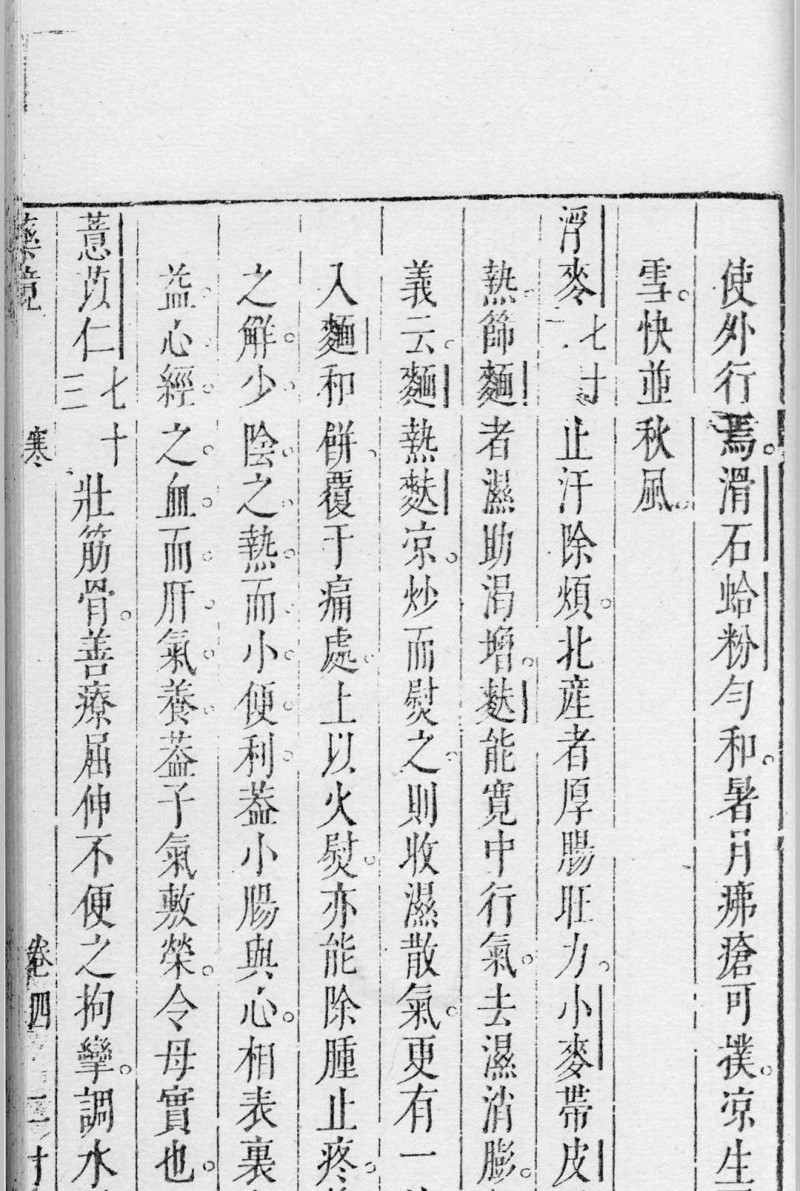 使外行焉滑石蛤粉勻和暑月疿瘡可撲凉生
雪快並秋風
浮麥七十二止汗除煩北產者厚腸旺力小麥帶皮
熱篩麵者濕助渴增麩能寬中行氣去濕消膨
義云麵熱麩凉炒而熨之則收濕散氣更有一
入麵和餅覆于痛處上以火熨亦能除腫止疼
之解少陰之熱而小便利葢小腸與心相表裏
益心經之血而肝氣養葢子氣敷榮令母實也
薏苡仁七十三壯筋骨善療屈伸不便之拘攣調水
藥鏡 寒 卷四 二十